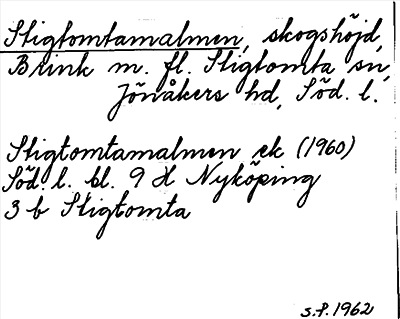 Stigtomtamalmen, skogshöjd,
Brink m. fl. Stigtomta sn,
Jönåkers hd, Söd. l.
Stigtomtamalmen ek (1960)
Söd. l. bl. 9 H Nyköping
3 b Stigtomta
s.f. 1962